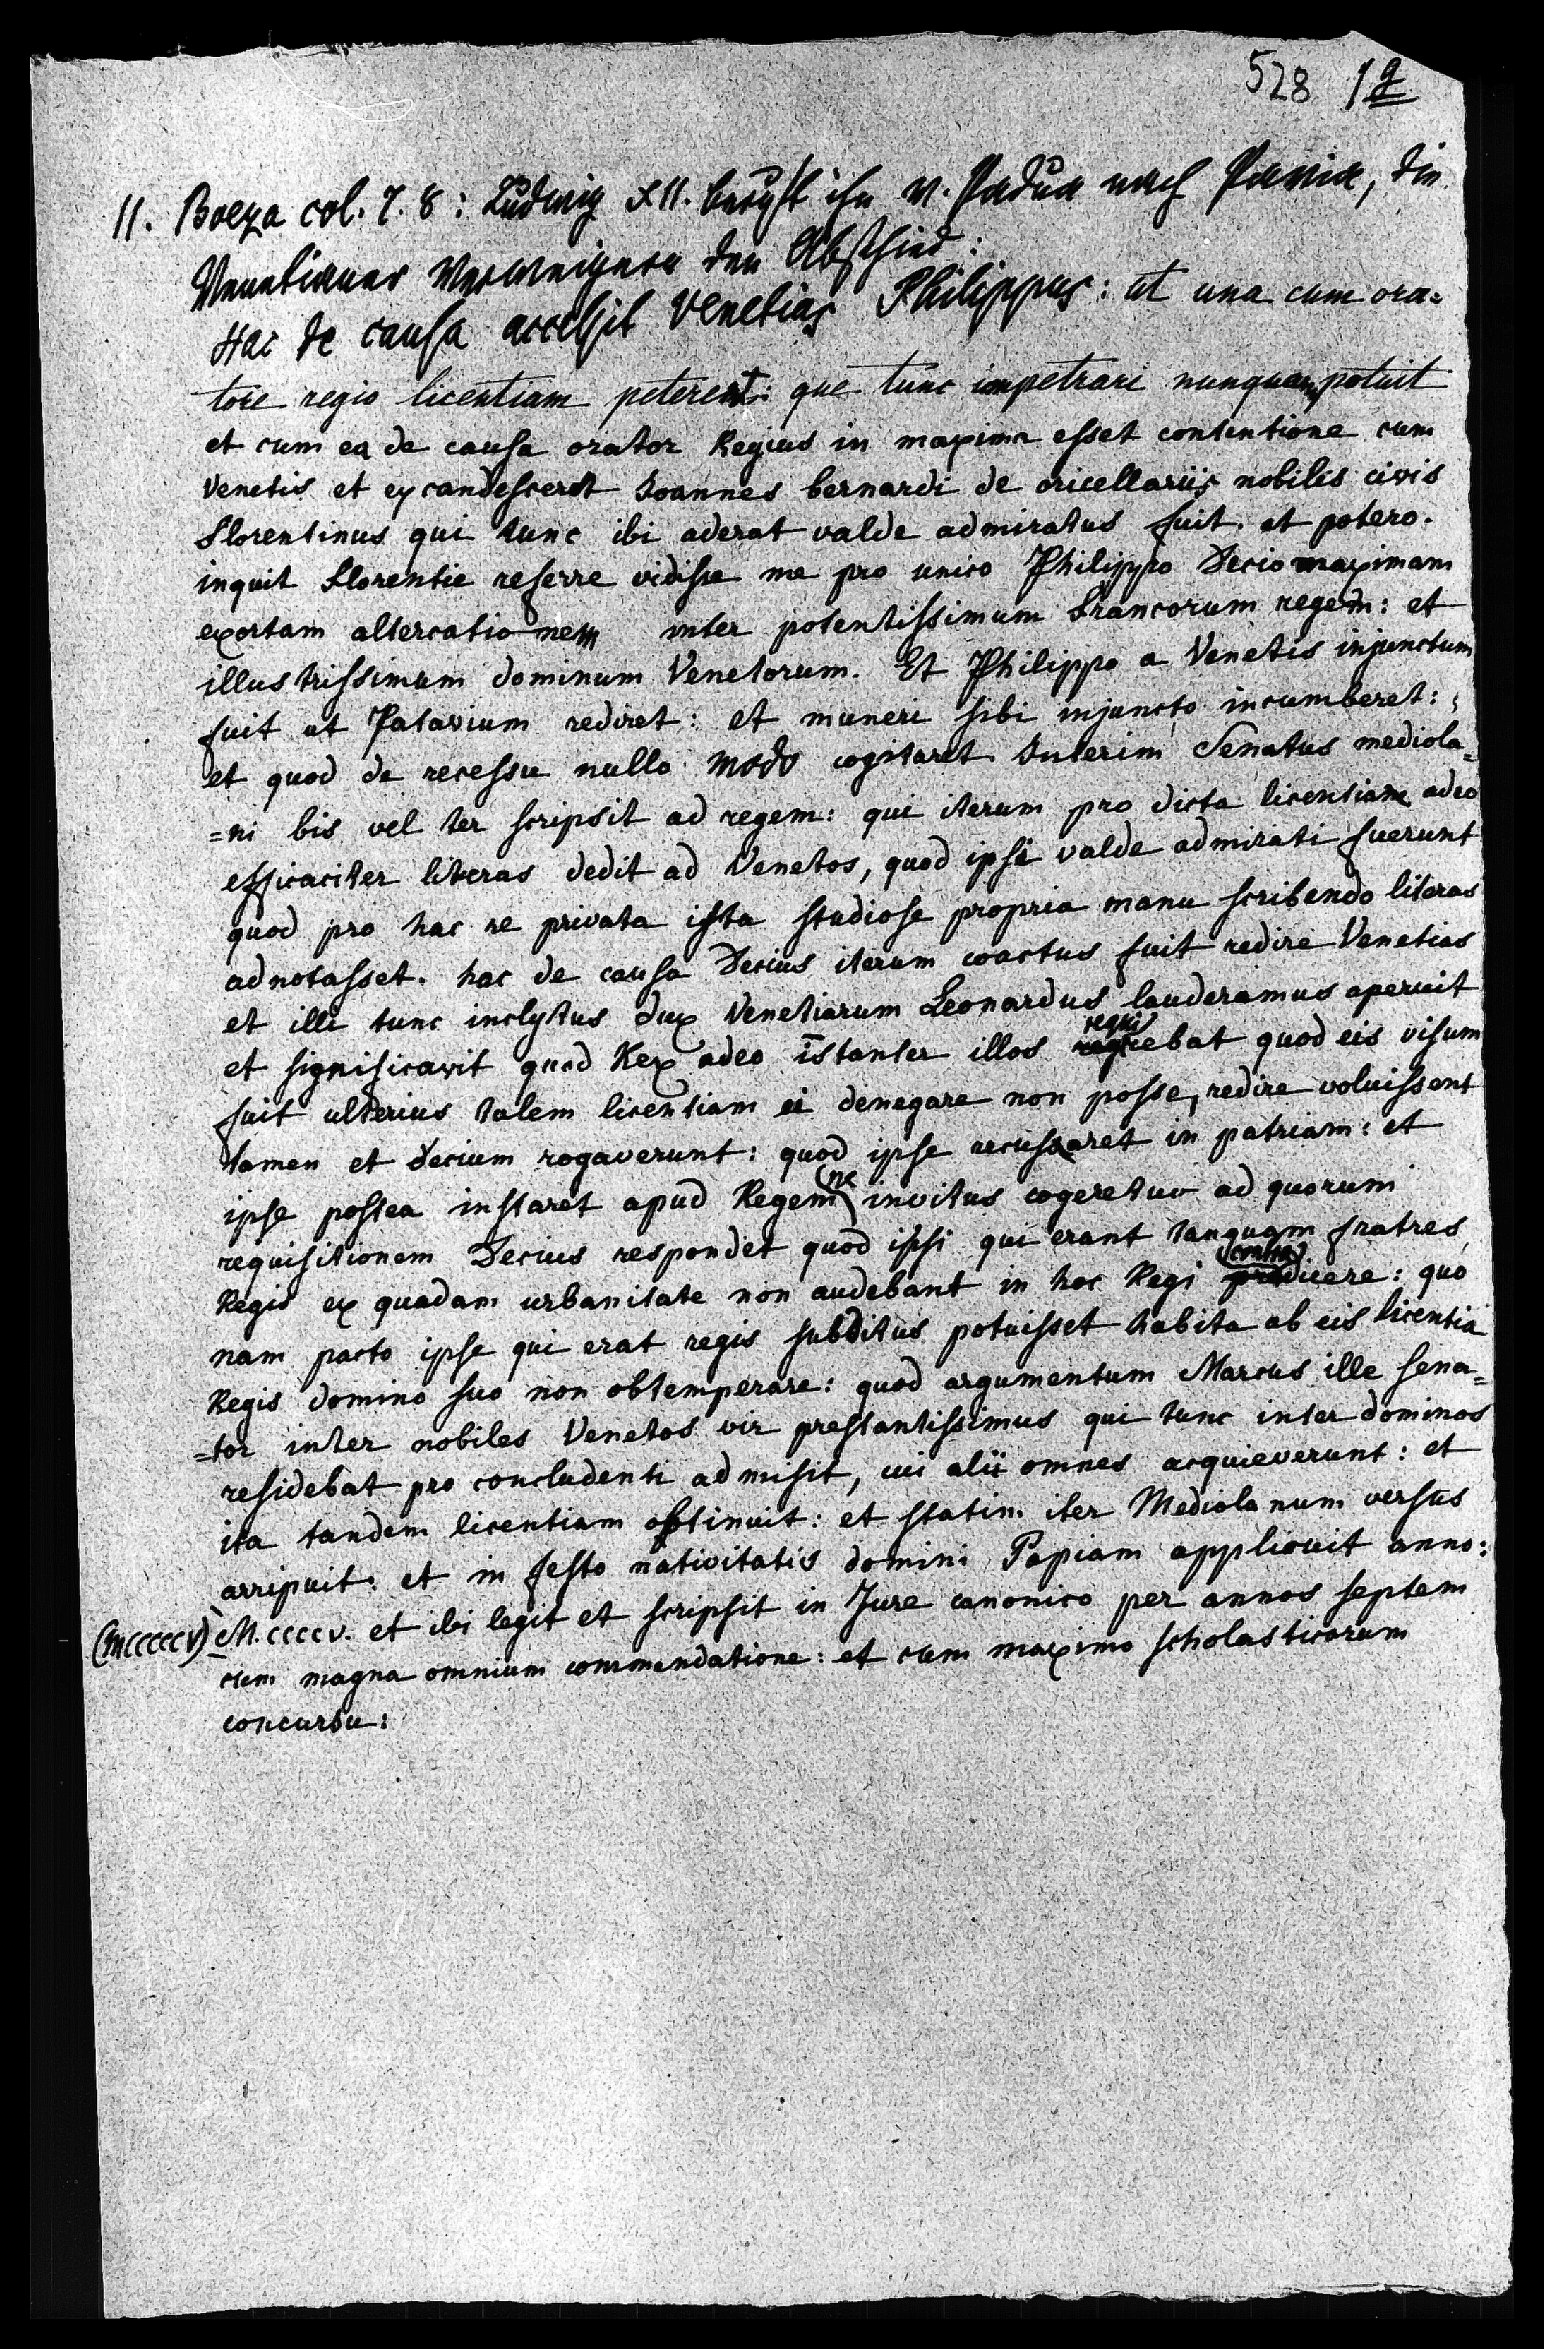 528 1g
11. Boeza col. 7. 8: Ludwig XII. beruft ihn v. Padua nach Pavia, die
Venetianer verweigern den Abschied:
Hac de causa accessit Venetias Philippus: ut una cum ora=
tore regio licentiam peteret: que tunc impetrari nunquam potuit
et cum ea de causa orator Regius in maxima esset contentione cum
Venetis et excandesceret Joannes bernardi de oricellariis nobiles civis
Florentinus qui tunc ibi aderat valde admiratus fuit. et potero.
inquit Florentie referre vidisse me pro unico Philippo Decio maximam
exortam altercationem inter potentissimum Francorum regem: et
illustrissimum dominum Venetorum. Et Philippo a Venetis injunctum
fuit ut Patavium rediret: et muneri sibi injuncto incumberet:
et quod de recessu nullo modo cogitaret Interim Senatus mediola=
=ni bis vel ter scripsit ad regem: qui iterum pro dicta licentiam adeo
efficaciter literas dedit ad Venetos, quod ipsi valde admirati fuerunt
quod pro hac re privata ista studiose propria manu scribendo literas
adnotasset. hac de causa Decius iterum coactus fuit redire Venetias
et illi tunc inclytus dux Venetiarum Leonardus lauderamus aperuit
et significavit quod Rex adeo īstanter illos requirebat quod eis visum
fuit ulterius talem licentiam ei denegare non posse, redire voluissent
tamen et Decium rogaverunt: quod ipse recusaret in patriam: et
ipse postea instaret apud Regem (ne) invitus cogeretur ad quorum
requisitionem Decius respondet quod ipsi qui erant tanquam fratres
Regis ex quadam urbanitate non audebant in hoc Regi (contra)dicere: quo
nam pacto ipse qui erat regis subditus potuisset habita ab eis licentia
Regis domino suo non obtemperare: quod argumentum Marcus ille sena=
=tor inter nobiles Venetos vir prestantissimus qui tunc inter dominos
residebat pro concludenti admisit, cui alii omnes acquieverunt: et
ita tandem licentiam obtinuit: et statim iter Mediolanum versus
arripuit. et in festo nativitatis domini Papiam applicuit anno:
(mccccv) M.ccccv. et ibi legit et scripsit in Jure canonico per annos septem
cum magna omnium commendatione: et cum maximo scholasticorum
concursu: